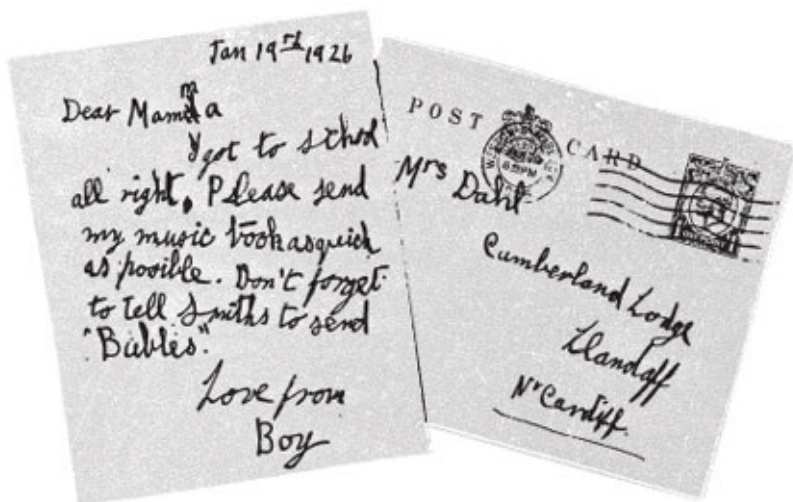 Jan 19th 1926
Dear Mama
I got to schol
all right. Please send
my music book as quick
as posible. Don't forget
to tell Smiths to send
"Bubles".
Love from
Boy
POST CARD
Mrs Dahl
Cumberland Lodge
Llandaff
Nr Cardiff.